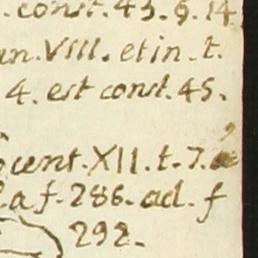 . const. 43. 9. 14
un. VIII. et in. t.
4. est const. 45.
cent. XII. t. 7.
la f. 286. ad. f
292.